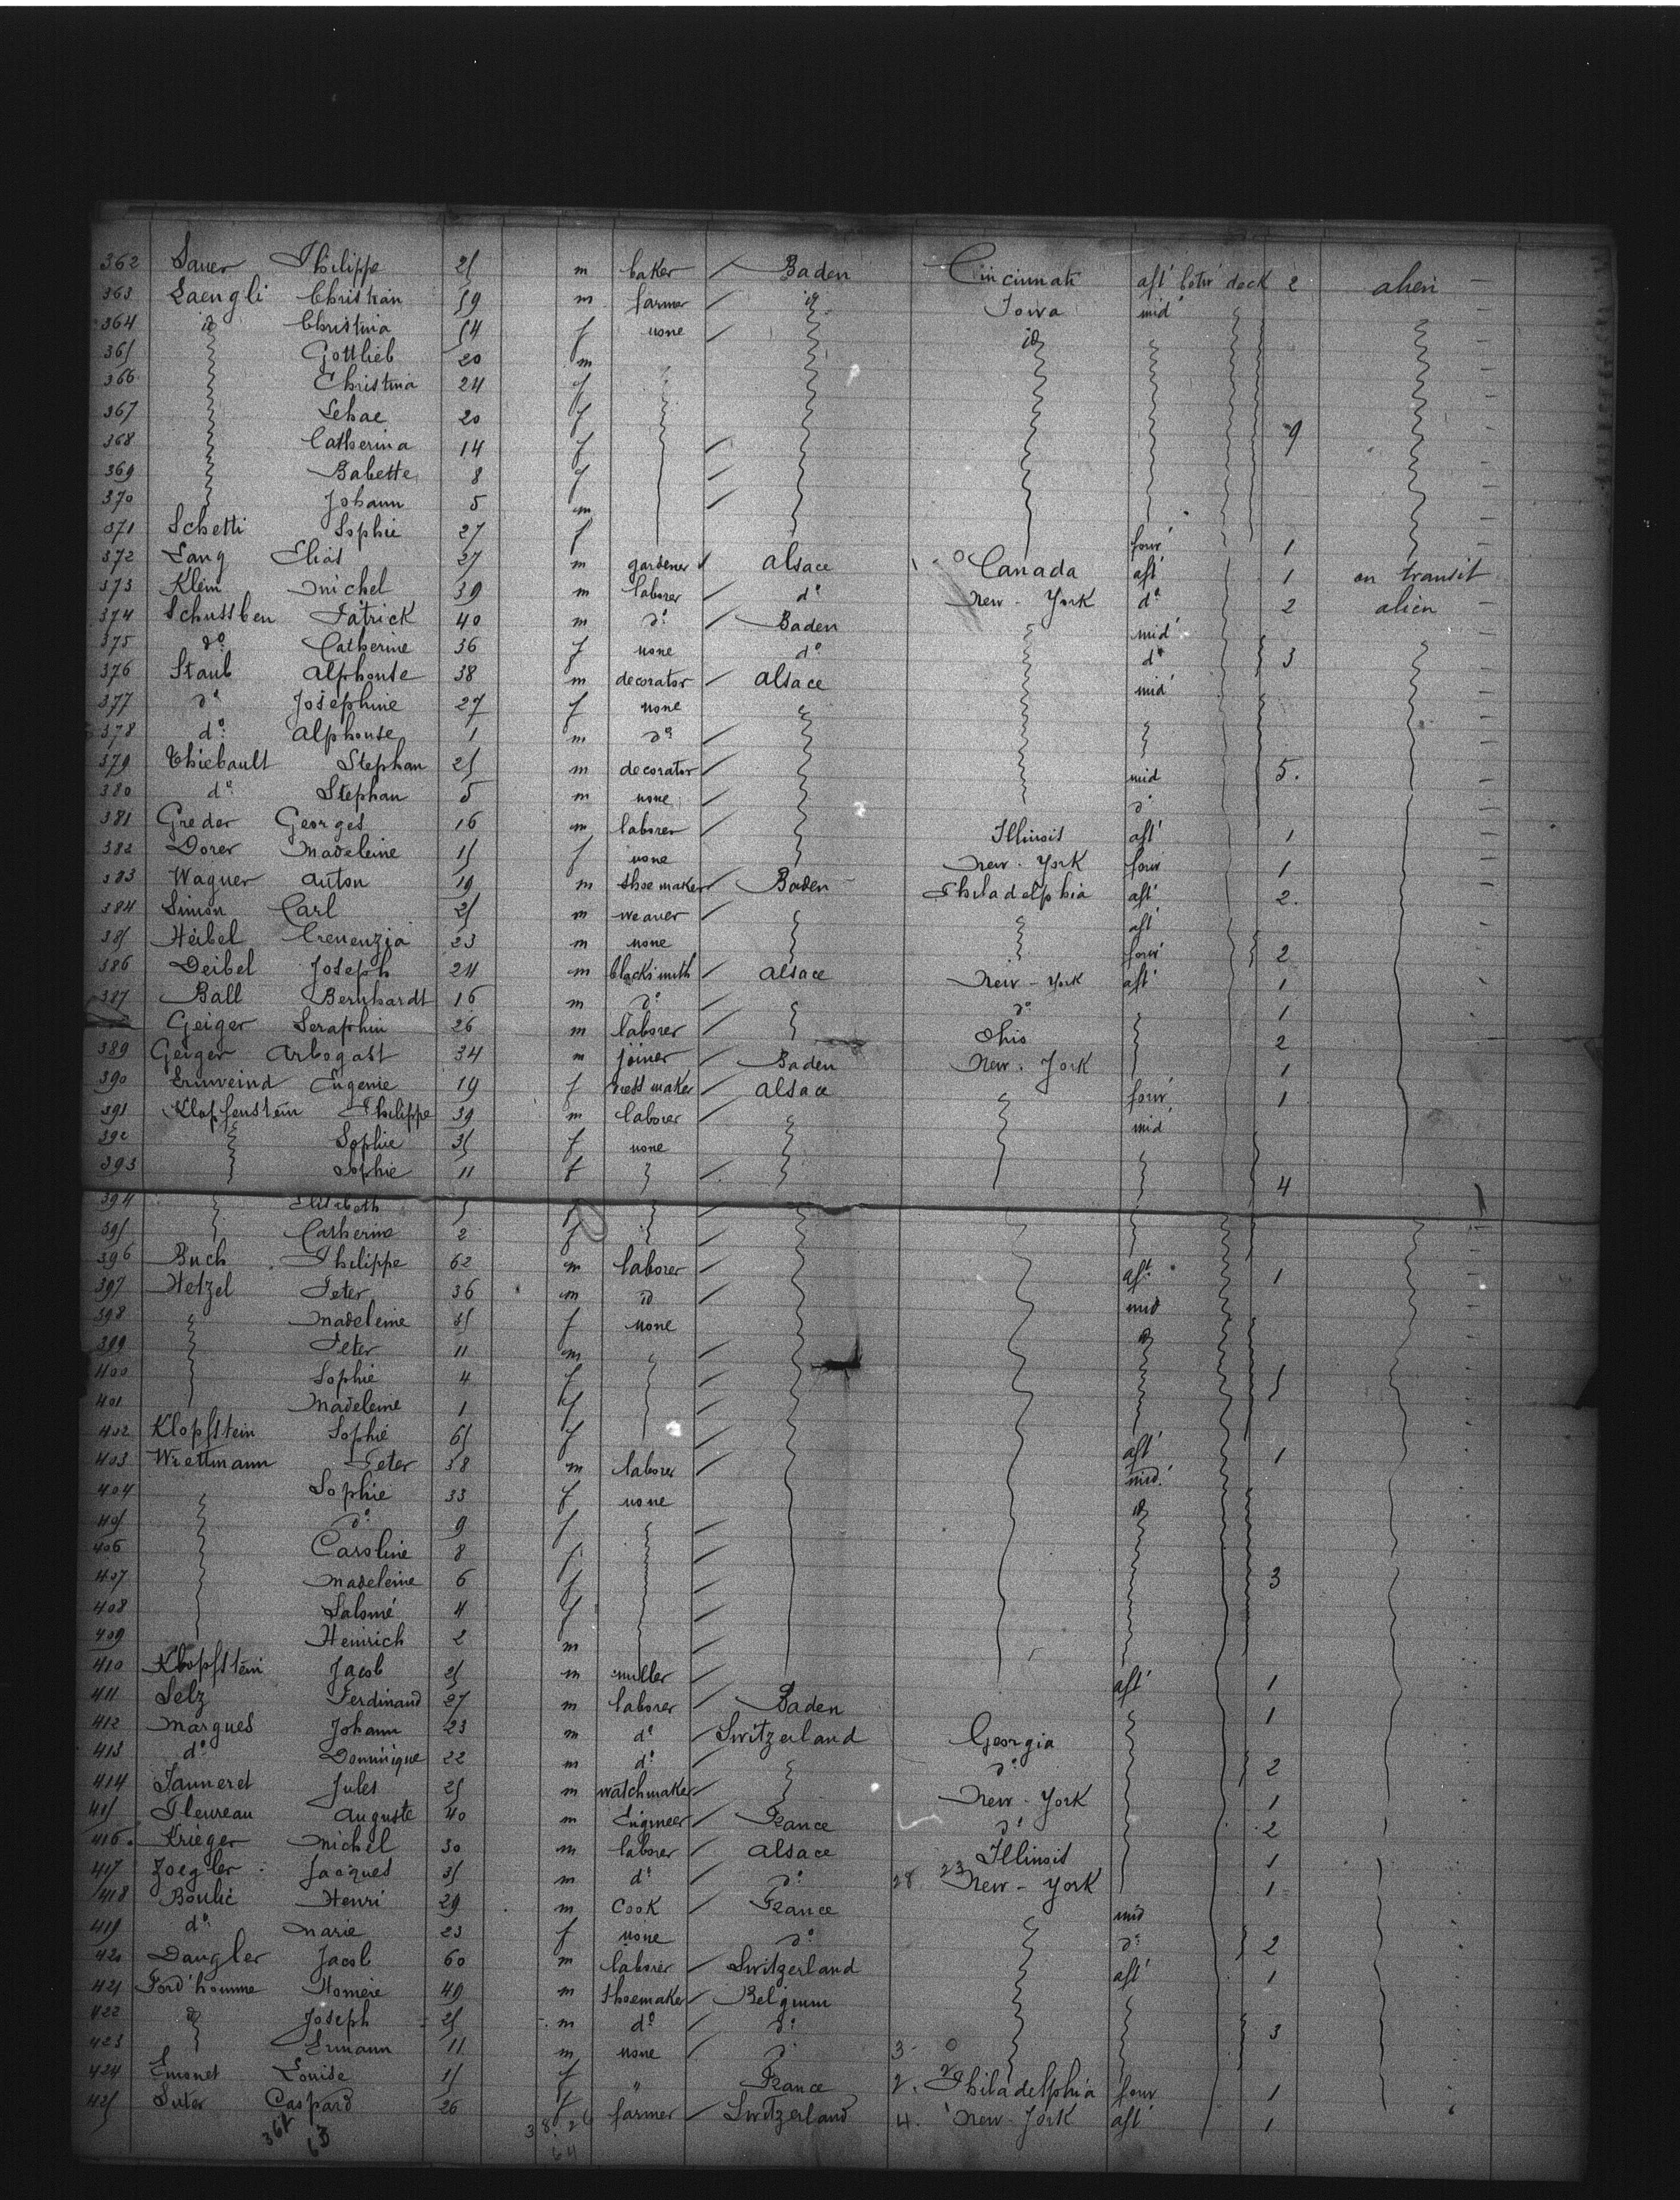 362 Sauer Philippe 25 m baker Baden Cincinnati aft' betw deck 2 alien
363 Laengli Christian 59 m farmer id Iowa mid'
364 id Christina 54 f none id
365 Gottlieb 20 m
366 Christina 24 f
367 20 f 9
368 Catherina 14 f
369 Babette 8 f
370 Johann 5 m
371 Schetti Sophie 27 f forw' 1
372 Lang Elias 27 m gardener Alsace Canada aft' 1 on transit
373 Klein Michel 39 m laborer d° New-York d° 2 alien
374 Schussben Patrick 40 m d° Baden mid'
375 d° Catherine 36 f none d° d° 3
376 Staub Alphonse 38 m decorator Alsace mid'
377 d° Joséphine 27 f none
378 d° Alphonse 1 m d°
379 Thiebault Stephan 25 m decorator mid 5.
380 d° Stephan 5 m none d°
381 Greder Georges 16 m laborer Illinois aft' 1
382 Dorer Madeleine 15 f none New-York forw 1
383 Wagner Anton 19 m shoe maker Baden Philadelphia aft' 2.
384 Simon Carl 25 m weaver aft'
385 Heibel 23 m none forw' 2
386 Deibel Joseph 24 m blacksmith Alsace New-York aft' 1
387 Ball Bernhardt 16 m d° d° 1
Geiger Seraphin 26 m laborer Ohio 2
389 Geiger Arbogast 34 m joiner Baden New-York 1
390 Ermweind Eugenie 19 f dress maker Alsace forw' 1
391 Klopfenstein Philippe 39 m laborer mid
392 Sophie 35 f none
393 Sophie 11 f 4
394 Elisabeth 5 f
395 Catherine 2 f
396 Buch Philippe 62 m laborer aft' 1
397 Hetzel Peter 36 m id mid
398 Madeleine 35 f none id
399 Peter 11 m
400 Sophie 4 f 5
401 Madeleine 1 f
402 Klopfstein Sophie 65 f aft' 1
403 Wrettmann Peter 38 m laborer mid'
404 Sophie 33 f none id
405 d° 9 f
406 Caroline 8 f
407 Madeleine 6 f 3
408 Salomé 4 f
409 Heinrich 2 m
410 Klopfstein Jacob 25 m miller aft' 1
411 Selz Ferdinand 27 m laborer Baden 1
412 Margues Johann 23 m d° Switzerland Georgia
413 d° Dominique 22 m d° d° 2
414 Janneret Jules 25 m watchmaker New-York 1
415 Fleureau Auguste 40 m Engineer France d° 2
416 Krieger Michel 30 m laborer Alsace Illinois 1
417 Zoegler Jacques 35 m d° d° 28 23 New-York 1
418 Boulic Henri 29 m Cook France mid
419 d° Marie 23 f none d° d° 2
420 Dangler Jacob 60 m laborer Switzerland aft' 1
421 Pord'homme Homère 49 m shoemaker Belgium
422 id Joseph 25 m d° d° 3
423 Ermann 11 m none d° 3
424 Emonet Louise 15 f " France 2. Philadelphia forw 1
425 Suter Caspard 26 f farmer Switzerland 4. New-York aft' 1